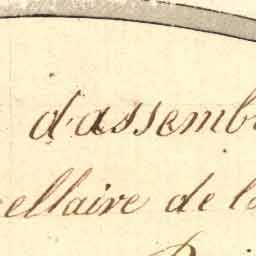 d'assemb
ellaire de l